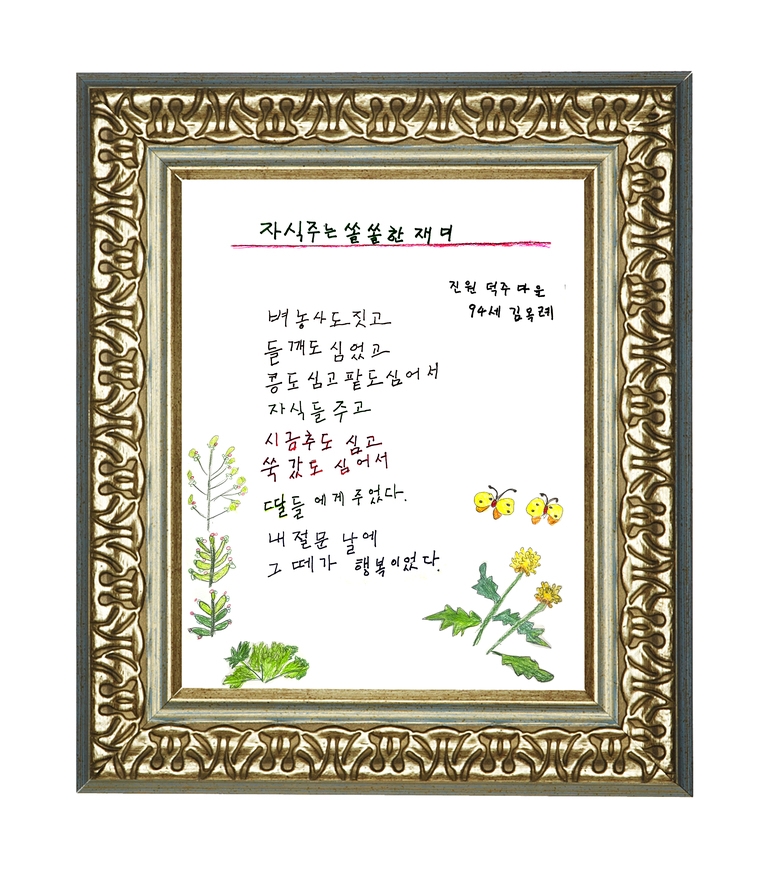 자식주는 쏠쏠한 재미
진원 덕주 다운
94세 김옥례
벼 농사도 짓고
들깨도 심었고
콩도 심고 팥도심어서
자식들 주고
시금추도 심고
쑥갔도 심어서
딸들에게 주었다.
내 절문 날에
그 떼가 행복이었다.